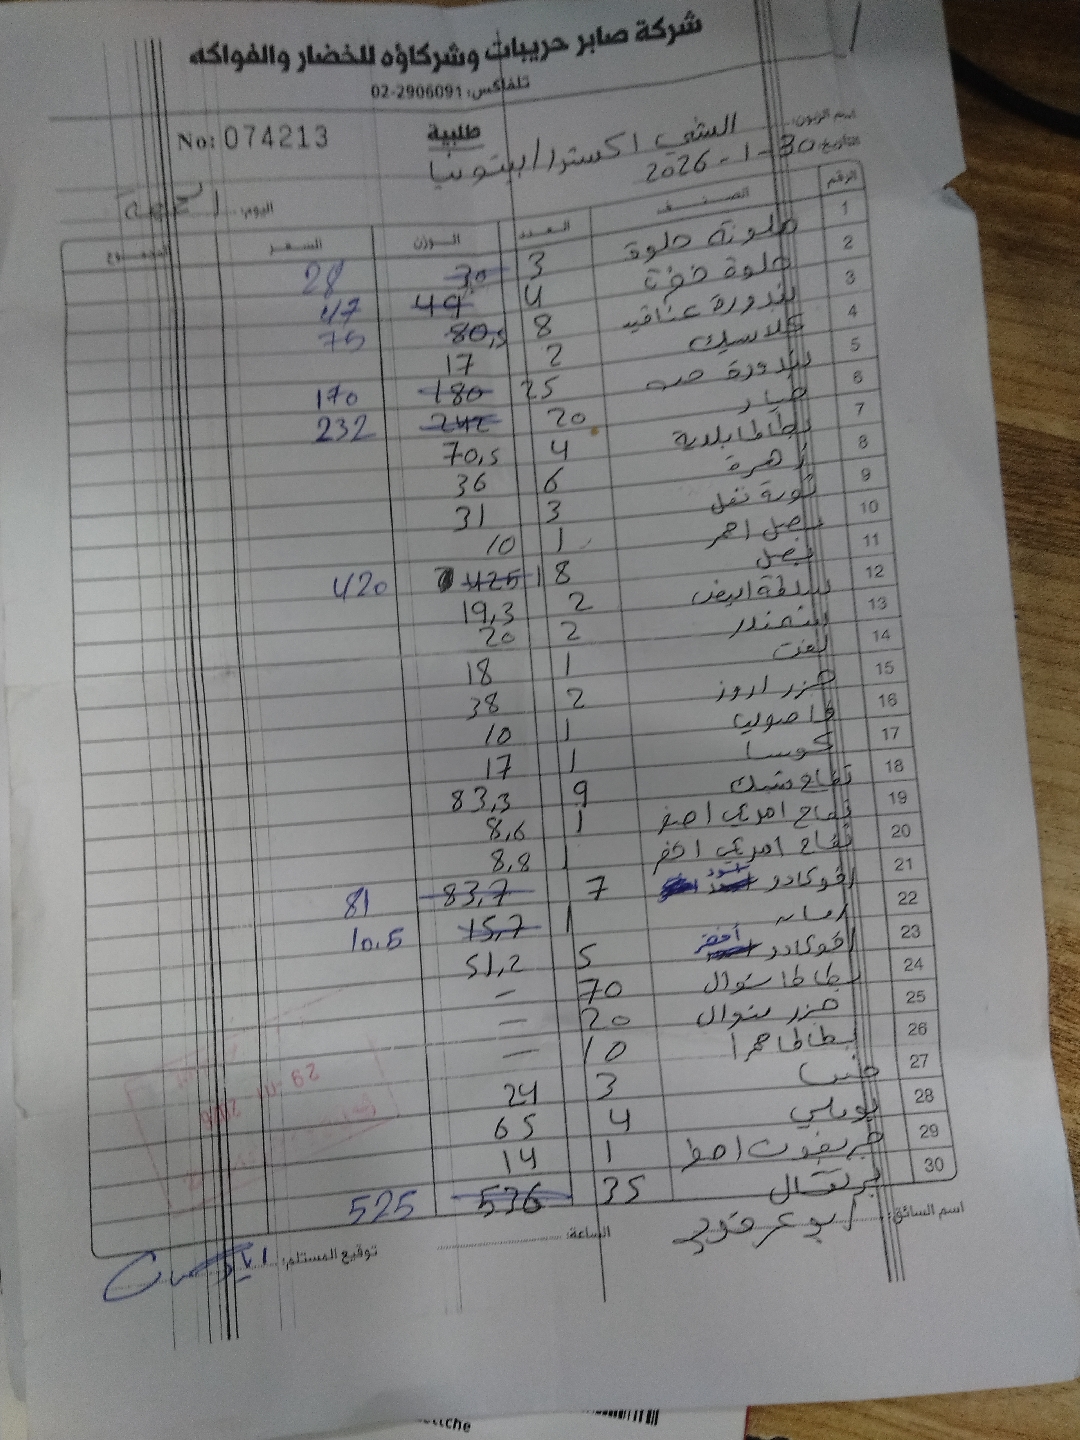 شركة صابر حريبات وشركاؤه للخضار والفواكه
تلفاكس: 02-2906091
No: 074213
طلبية
اسم الزبون: الشني اكسترا / بيتونيا
التاريخ: 30-1-2026
اليوم: الجمعة
الرقم الصنف العدد الوزن السعر المجموع
1 ملونة حلوة 3 30 28
2 حلوة 4 49 47
3 بندورة عناقيد 8 80,5 75
4 كلاسيك 2 17
5 بندورة حب 25 180 170
6 خيار 20 242 232
7 بطاطا بلدية 4 70,5
8 زهرة 6 36
9 3 31
10 بصل احمر 1 10
11 بصل 18 425 420
12 2 19,3
13 شمندر 2 20
14 لفت 1 18
15 جزر 2 38
16 فاصوليا 1 10
17 كوسا 1 17
18 تفاح 9 83,3
19 تفاح امريكي اصفر 1 8,6
20 تفاح امريكي اخضر 1 8,8
21 افوكادو اسود 7 83,7 81
22 1 15,7 10,5
23 افوكادو أخضر 5 51,2
24 بطاطا شوال 70 –
25 جزر شوال 20 –
26 بطاطا حمرا 10 –
27 3 24
28 بوملي 4 65
29 1 14
30 برتقال 35 536 525
اسم السائق:
الساعة:
توقيع المستلم: